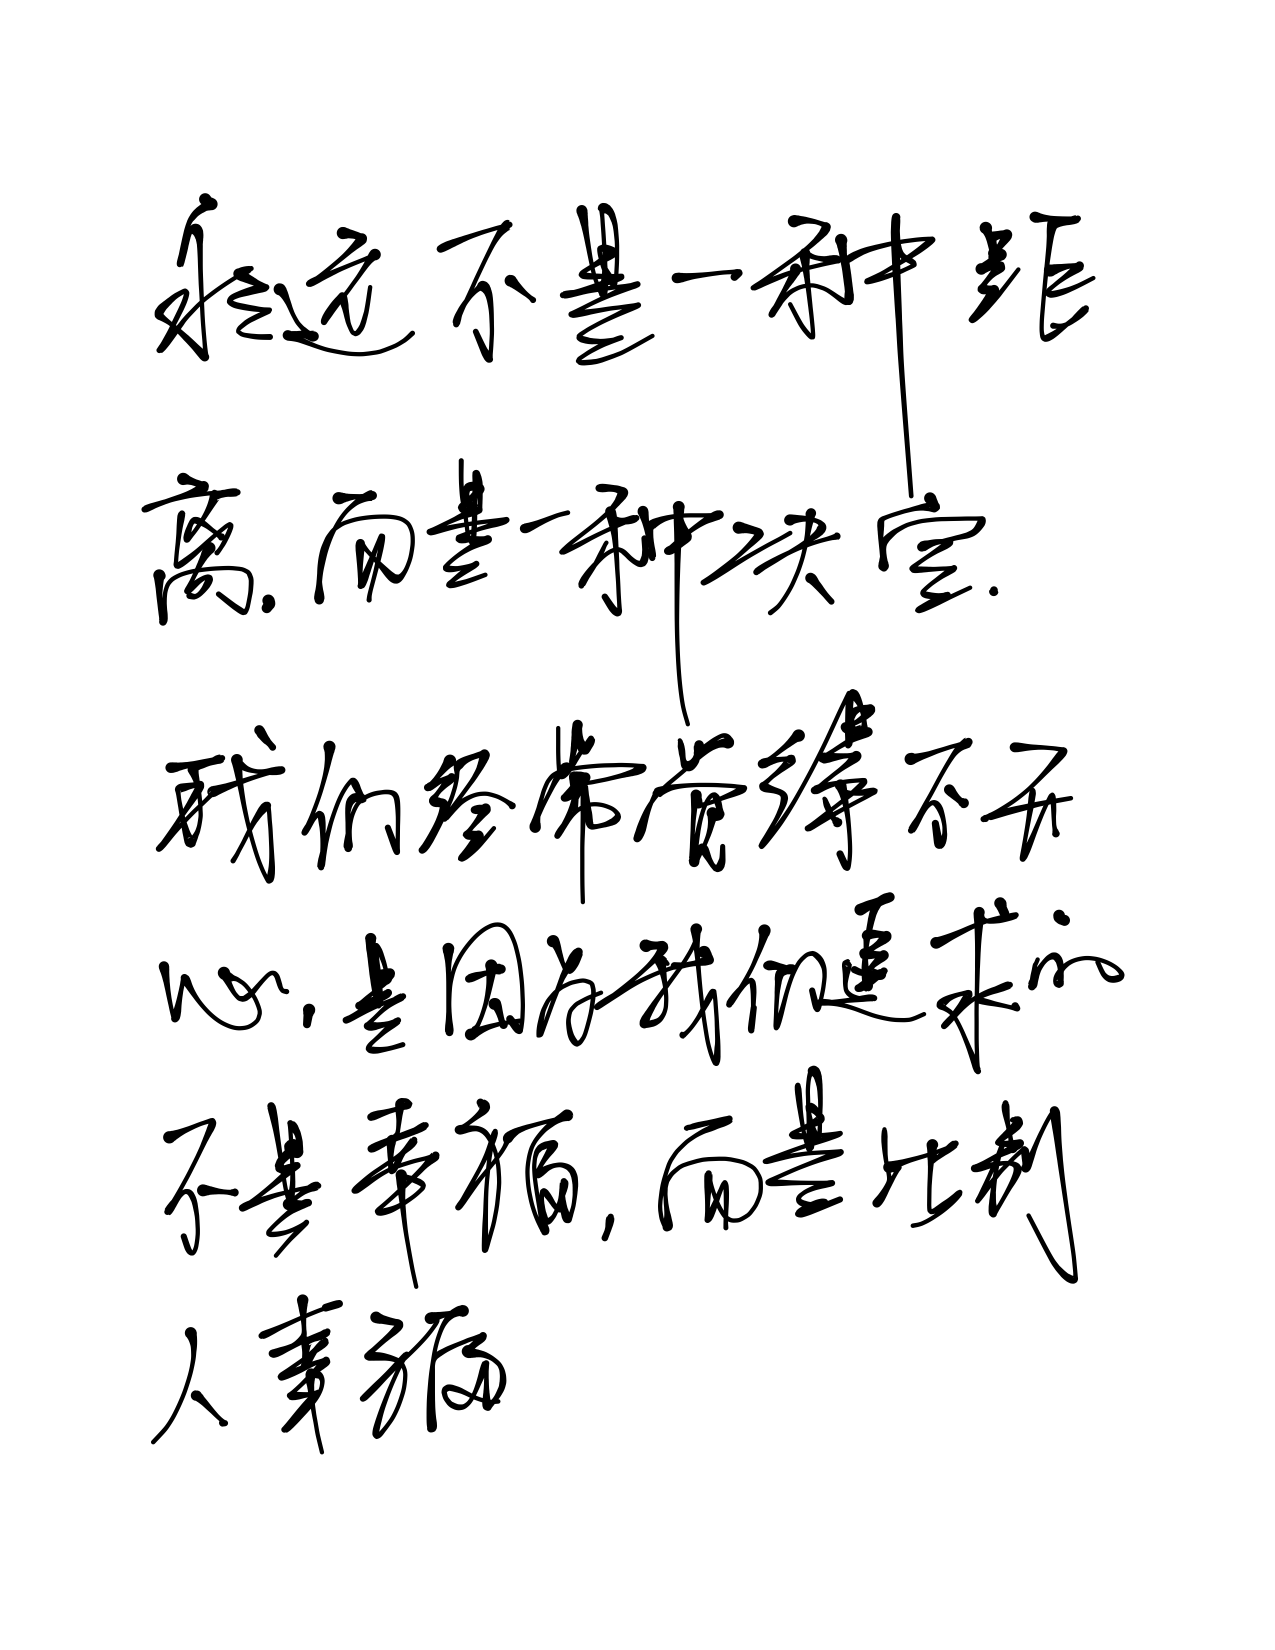 永远不是一种距
离,而是一种决定.
我们经常觉得不开
心,是因为我们追求的
不是幸福,而是比别
人幸福